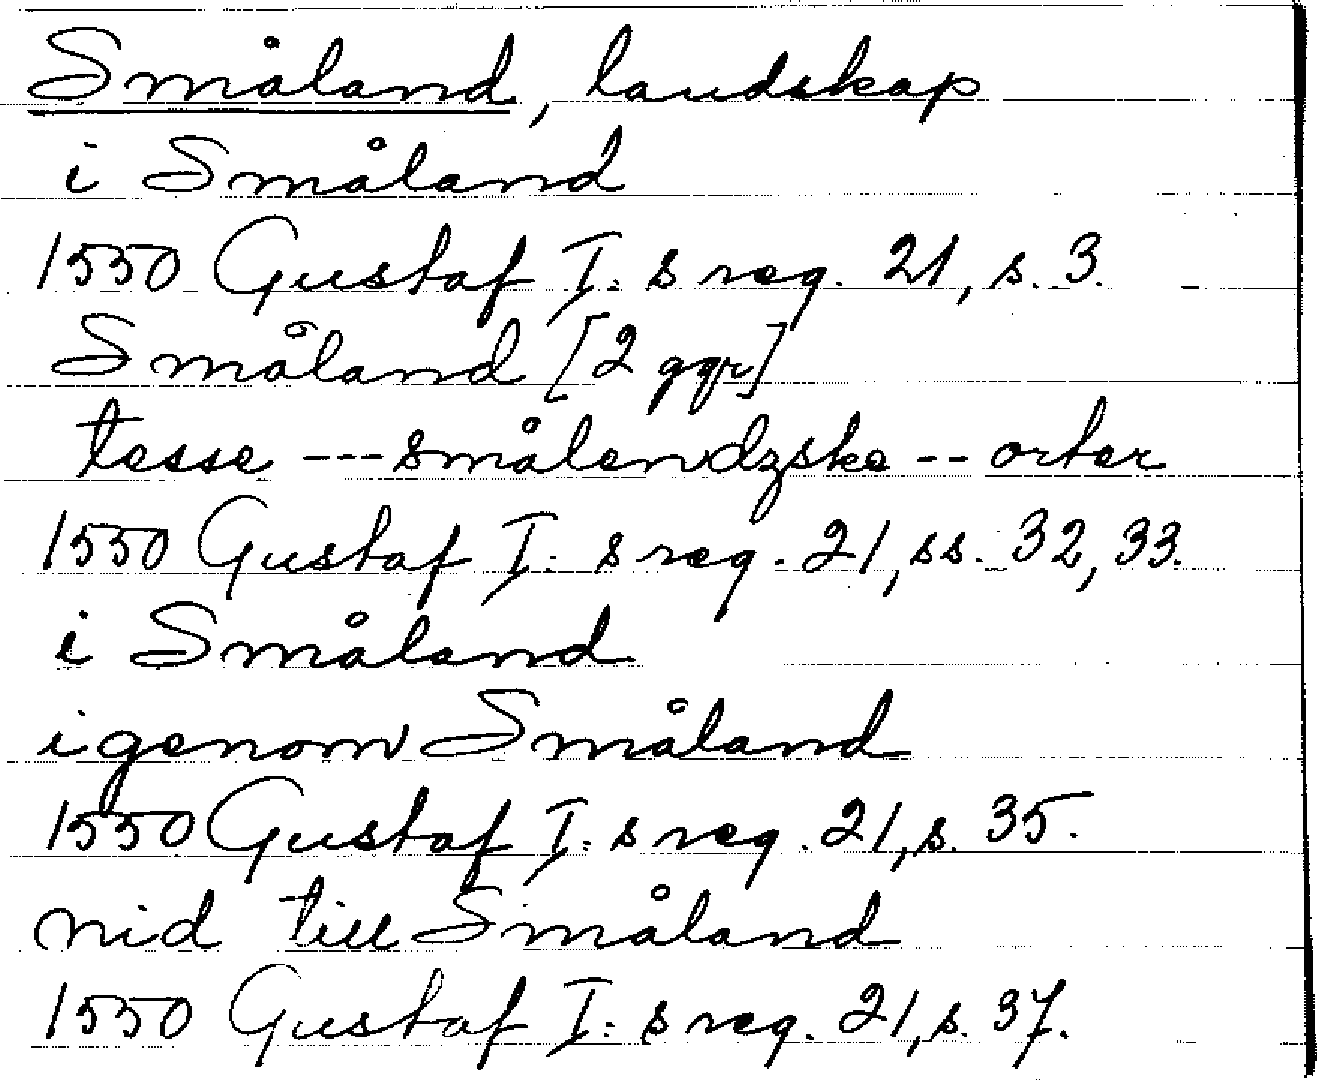 Småland, landskap
i Småland
1550 Gustaf I: s reg. 21, s. 3.
Småland [2 ggr]
tesse --- smålendzske -- orter
1550 Gustaf I: s reg. 21, ss. 32, 33.
i Småland
igenom Småland
1550 Gustaf I: s reg. 21, s. 35.
nid till Småland
1550 Gustaf I: s reg. 21, s. 37.